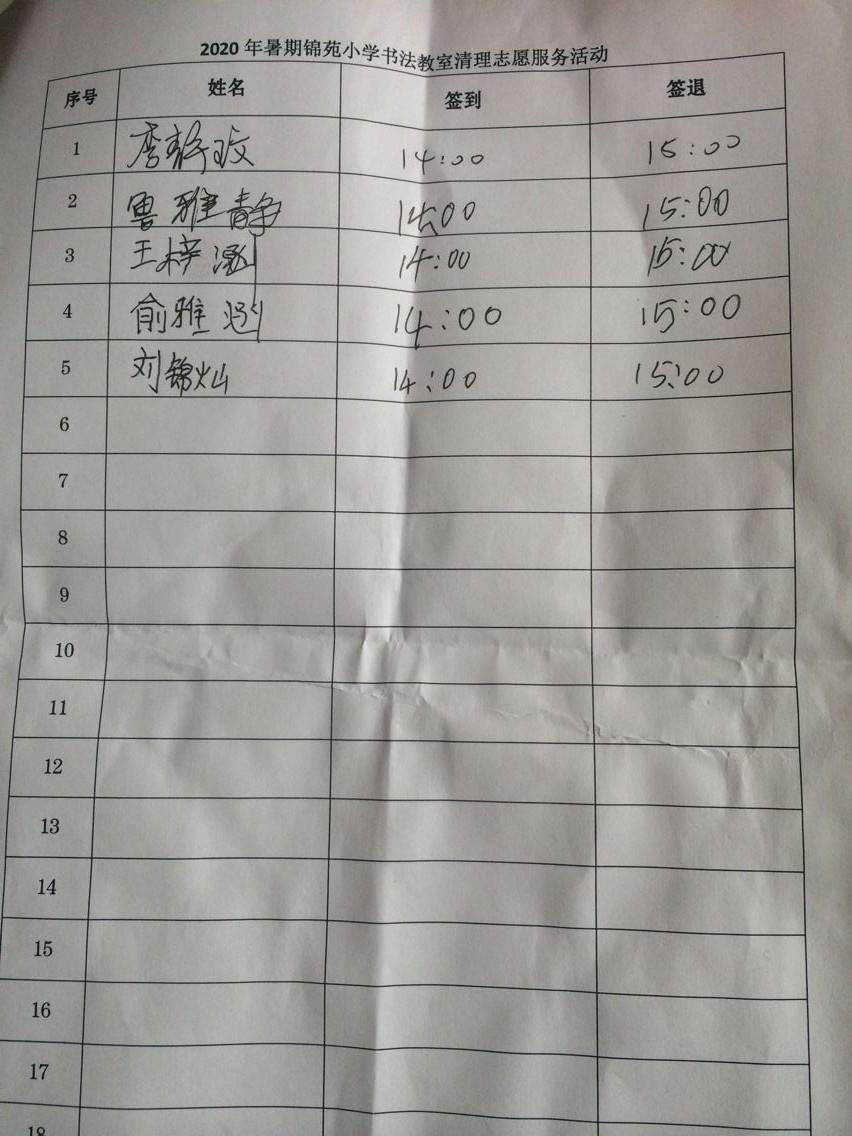 2020年暑期锦苑小学书法教室清理志愿服务活动
序号 姓名 签到 签退
1 李静玟 14:00 15:00
2 鲁雅静 14:00 15:00
3 王梓涵 14:00 15:00
4 俞雅涵 14:00 15:00
5 刘锦灿 14:00 15:00
6
7
8
9
10
11
12
13
14
15
16
17
18